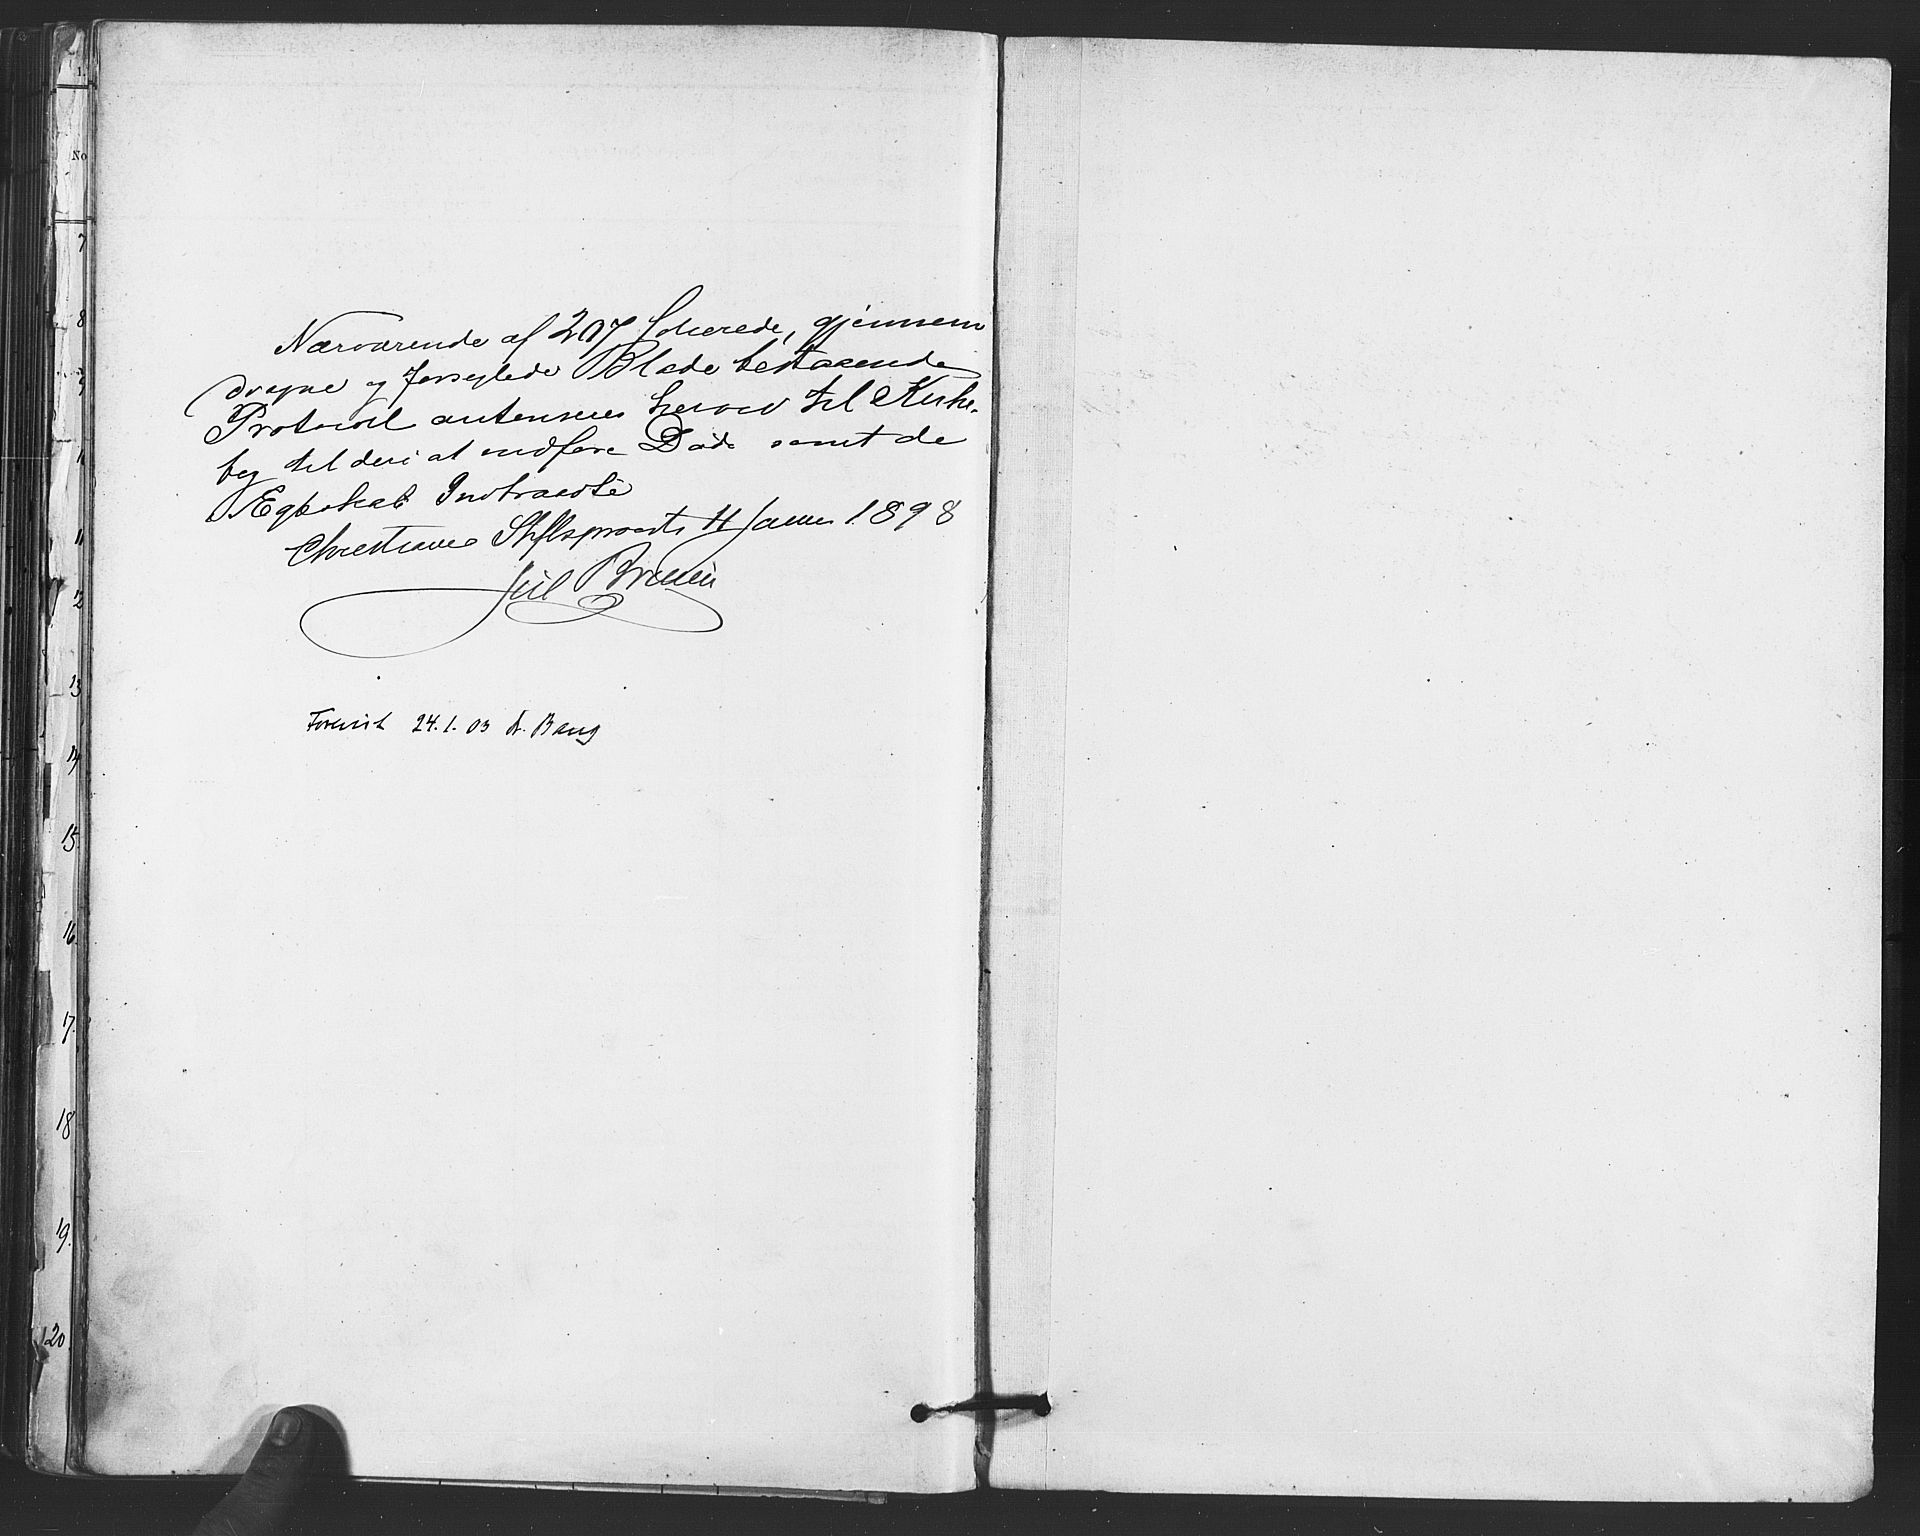 Nærværende af 207 folierede, gjennem
dragne og forseglede Blade bestaaende
Protocol autoriseres herved til Kirke-
bog til deri at indføre Døde samt de
Ægteskab Indtraadte
Christiania Stiftsprovsti 11 Januar 1898
Jul Bruun
Forevist 24.1.03 A. Bang
No
7
8
9
11
12
13
14
15.
16.
17.
18
19.
20.